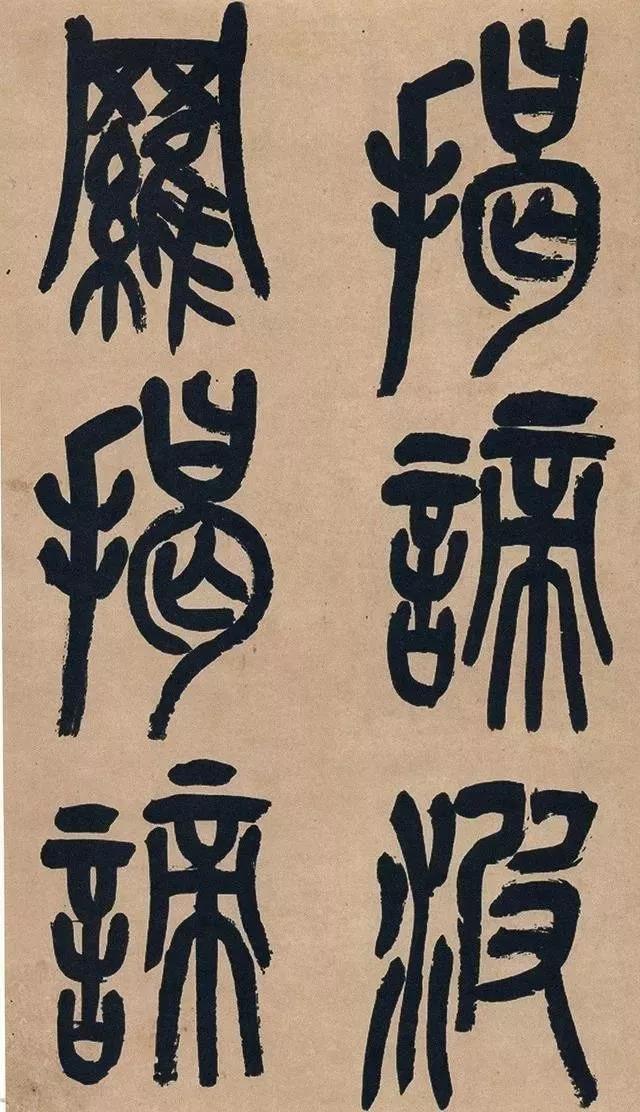 揭諦波
羅揭諦